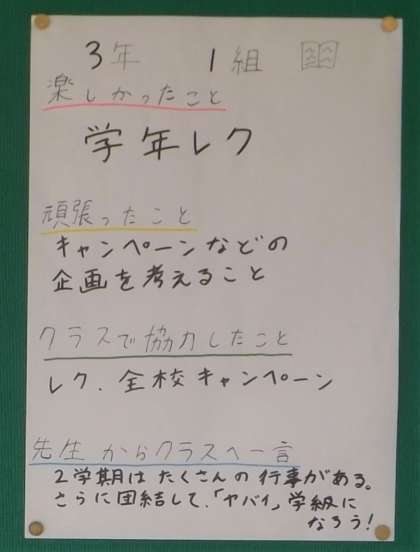 3年 1組
楽しかったこと
学年レク
頑張ったこと
キャンペーンなどの
企画を考えること
クラスで協力したこと
レク、全校キャンペーン
先生からクラスへ一言
2学期はたくさんの行事がある。
さらに団結して、「ヤバイ」学級に
なろう!